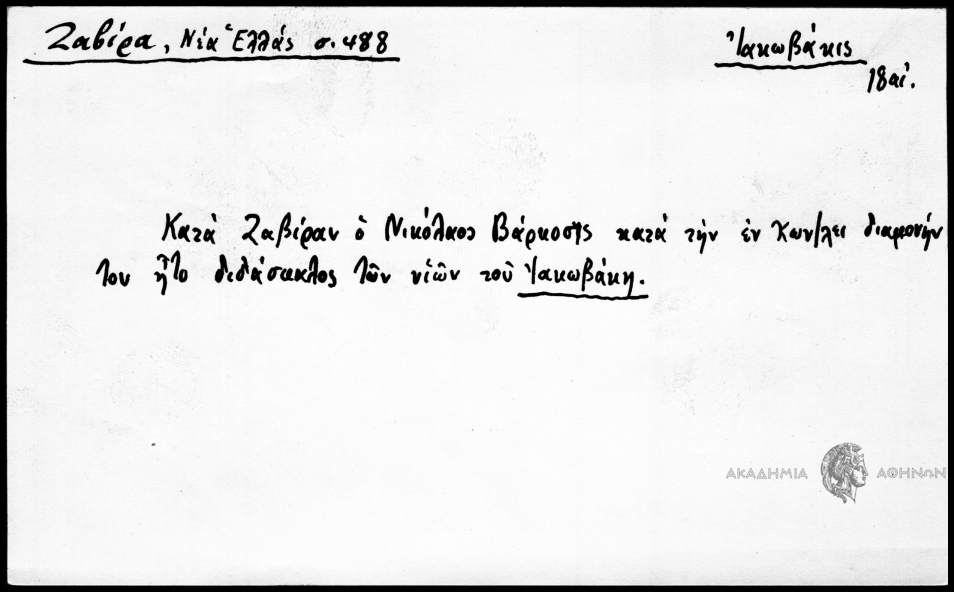 Ζαβίρα, Νέα Ἑλλάς σ. 488
Ἰακωβάκις
18 αἰ.
Κατὰ Ζαβίραν ὁ Νικόλαος Βάρκοσης κατὰ τὴν ἐν Κων/λει διαμονήν
του ἦτο διδάσκαλος τῶν υἱῶν τοῦ Ἰακωβάκη.
ΑΚΑΔΗΜΙΑ ΑΘΗΝΩΝ